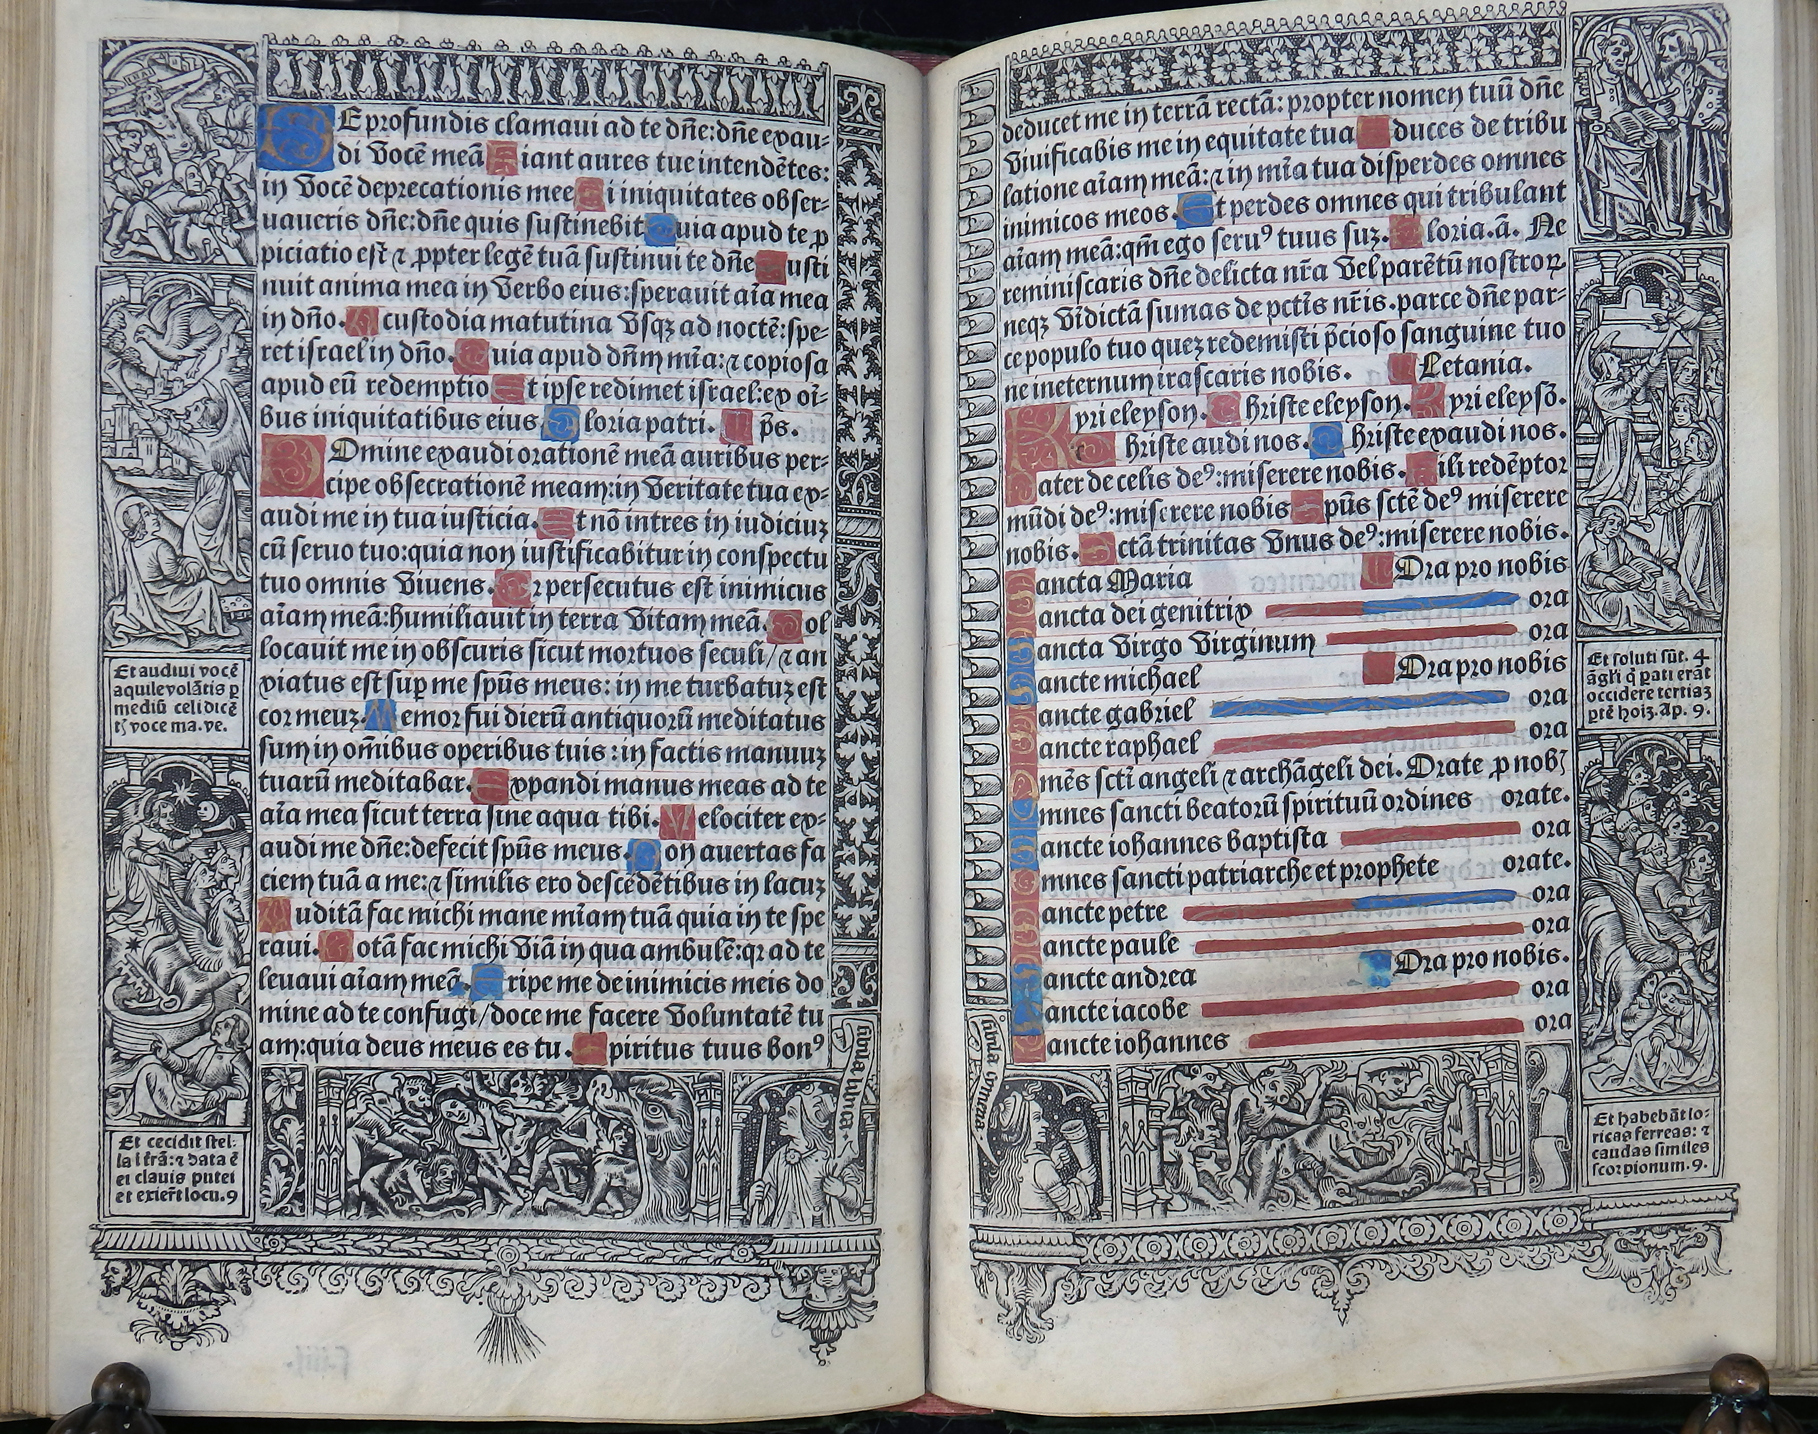 DE profundis clamaui ad te dñe: dñe exau-
di vocē meā Fiant aures tue intendētes:
in vocē deprecationis mee Si iniquitates obser-
uaueris dñe: dñe quis sustinebit Quia apud te ꝓ
piciatio est ⁊ ꝓpter legē tuā sustinui te dñe Susti
nuit anima mea in verbo eius: sperauit aīa mea
in dño. A custodia matutina vsqꝫ ad noctē: spe-
ret israel in dño. Quia apud dñm mīa: ⁊ copiosa
apud eū redemptio Et ipse redimet israel: ex oī-
bus iniquitatibus eius Gloria patri. p̄s.
DOmine exaudi orationē meā auribus per-
cipe obsecrationē meam: in veritate tua ex-
audi me in tua iusticia. Et nō intres in iudiciuꝫ
cū seruo tuo: quia non iustificabitur in conspectu
tuo omnis viuens. Qr persecutus est inimicus
aīam meā: humiliauit in terra vitam meā. Col
locauit me in obscuris sicut mortuos seculi / ⁊ an
xiatus est suꝑ me spūs meus: in me turbatuꝫ est
cor meuꝫ. Memor fui dierū antiquorū meditatus
sum in oīnibus operibus tuis: in factis manuuꝫ
tuarū meditabar. Expandi manus meas ad te
aīa mea sicut terra sine aqua tibi. Velociter ex-
audi me dñe: defecit spūs meus. Non auertas fa
ciem tuā a me: ⁊ similis ero descēdētibus in lacuꝫ
Auditā fac michi mane mīam tuā quia in te spe
raui. Notā fac michi viā in qua ambulē: qr ad te
leuaui aīam meā. Eripe me de inimicis meis do
mine ad te confugi / doce me facere voluntatē tu
am: quia deus meus es tu. Spiritus tuus bonꝰ
Et audiui vocē
aquile volātis ꝑ
mediū celi dicē
tꝭ voce ma. ve.
Et cecidit stel-
la ī trā: ⁊ data ē
ei clauis putei
et exierūt locu. 9
sibila libica.
deducet me in terrā rectā: propter nomen tuū dñe
viuificabis me in equitate tua Educes de tribu
latione aīam meā: ⁊ in mīa tua disperdes omnes
inimicos meos. Et perdes omnes qui tribulant
aīam meā: qm̄ ego seruꝰ tuus suꝫ. Gloria. ā. Ne
reminiscaris dñe delicta nr̄a vel parētū nostroꝝ
neqꝫ vīdictā sumas de pctīs nr̄is. parce dñe par-
ce populo tuo queꝫ redemisti p̄cioso sanguine tuo
ne ineternum irascaris nobis. Letania.
Kyri eleyson. Christe eleyson. Kyri eleysō.
Christe audi nos. Christe exaudi nos.
Pater de celis deꝰ: miserere nobis. Fili redēptor
mūdi deꝰ: miserere nobis Spūs sctē deꝰ miserere
nobis. Sctā trinitas vnus deꝰ: miserere nobis.
Sancta Maria Ora pro nobis
Sancta dei genitrix ora
Sancta virgo virginum ora
Sancte michael Ora pro nobis
Sancte gabriel ora
Sancte raphael ora
Omēs sctī angeli ⁊ archāgeli dei. Orate ꝓ nobꝭ
Omnes sancti beatorū spirituū ordines orate.
Sancte iohannes baptista ora
Omnes sancti patriarche et prophete orate.
Sancte petre ora
Sancte paule ora
Sancte andrea Ora pro nobis.
Sancte iacobe ora
Sancte iohannes ora
Et soluti sūt. 4
āgli q̄ ꝑati erāt
occidere tertiaꝫ
ꝑtē hoiꝫ. Ap. 9.
Et habebāt lo-
ricas ferreas: ⁊
caudas similes
scorpionum. 9.